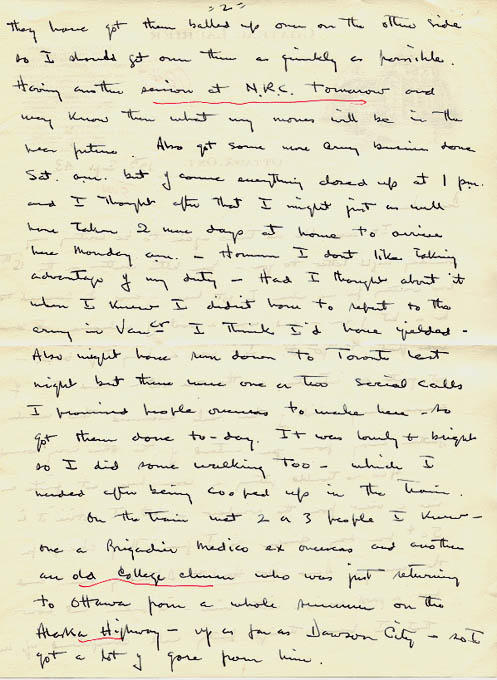 -2-
they have got them balled up over on the other side
so I should get over there as quickly as possible.
Having another session at N.R.C. tomorrow and
may know then what my moves will be in the
near future. Also got some more army business done
Sat. a.m. but of course everything closed up at 1 p.m.
and I thought after that I might just as well
have taken 2 more days at home to arrive
here Monday am. – However I don't like taking
advantage of my duty – Had I thought about it
when I knew I didn't have to report to the
army in Vancr I think I'd have yielded –
Also might have run down to Toronto last
night but there were one or two social calls
I promised people overseas to make here so
got them done to-day. It was lovely & bright
so I did some walking too – which I
needed after being cooped up in the train.
On the train met 2 or 3 people I knew –
one a Brigadier Medico ex overseas and another
an old College chum who was just returning
to Ottawa from a whole summer on the
Alaska Highway – up as far as Dawson City – so I
got a lot of gore from him.